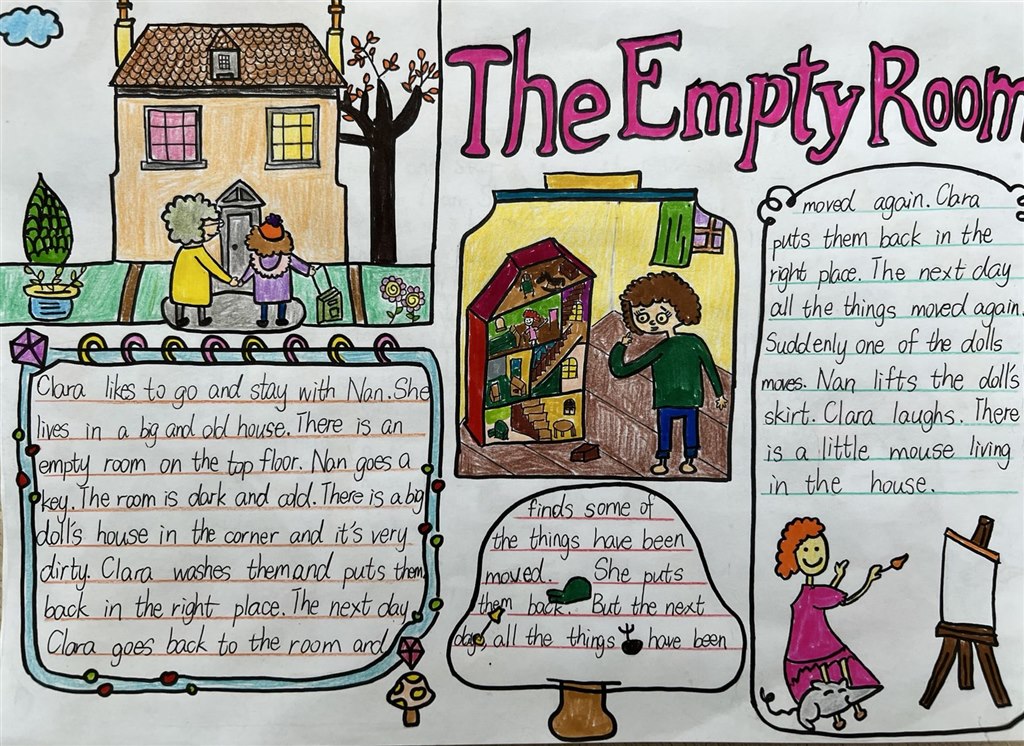 The Empty Room
Clara likes to go and stay with Nan. She
lives in a big and old house. There is an
empty room on the top floor. Nan goes a
key. The room is dark and cold. There is a big
doll's house in the corner and it's very
dirty. Clara washes them and puts them
back in the right place. The next day
Clara goes back to the room and
finds some of
the things have been
moved. She puts
them back. But the next
day, all the things have been
moved again. Clara
puts them back in the
right place. The next day
all the things moved again.
Suddenly one of the dolls
moves. Nan lifts the doll's
skirt. Clara laughs. There
is a little mouse living
in the house.